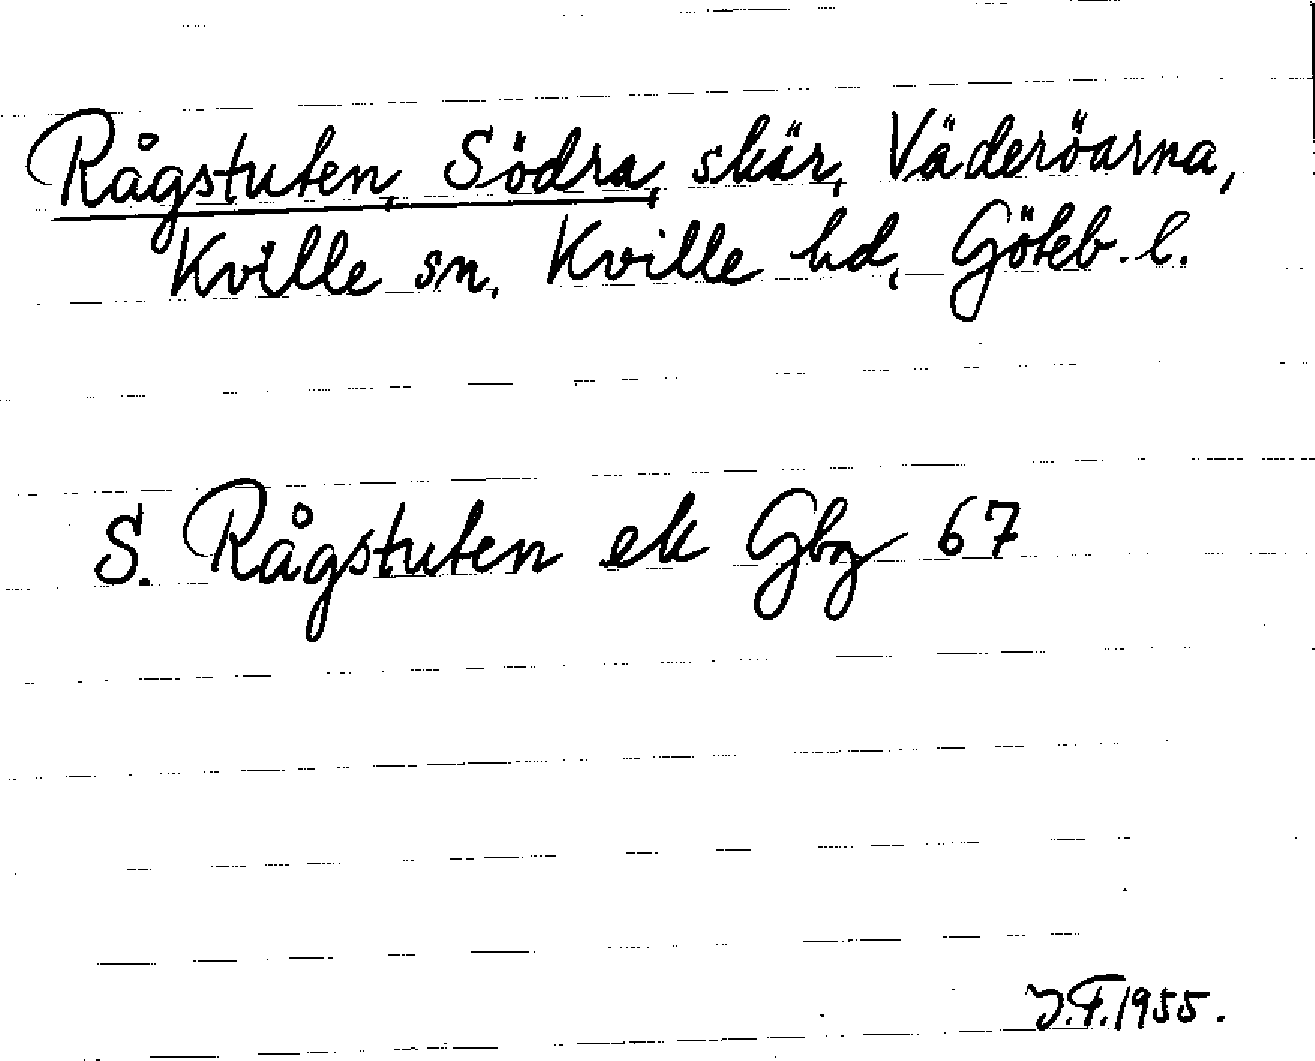 Rågstuten, Södra, skär, Väderöarna,
Kville sn, Kville hd, Göteb. l.
S. Rågstuten ek Gbg 67
J.F. 1955.